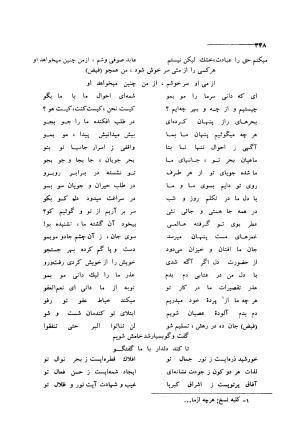 ۳۴۸
میکنم حق را عبادت، خشك لیکن نیستم عابد صوفی وشم ، ازمن چنین میخواهد او
هرکسی را از مئی سر خوش شود ، من همچو (فیض)
از می او سرخوشم ، از من چنین میخواهد او
ای که دانی سرما را مو بمو شمه‌ای احوال ما با ما بگو
چیستیم و از کجا و بهر چه‌ایم ؟ کیست نحن، کیست کنت، کیست هو ؟
بحرهای راز پنهان کرده‌ای در طلب افکنده ما را جو بجو
هر چه میگوئیم پنهان ما بما پیش میدانیش پیدا ، مو بمو
آگهی از احوال تنها تا بتا واقفی ز اسرار جانها تو بتو
ماهیان بحر تو ، جانهای ما بحر جویان ، جا بجا و جو بجو
ما شده جویای تو از هر طرف تو نشسته در برابر روبرو
روی تو دایم بسوی ما و ما در طلب حیران و جویان سو بسو
یا دل ما در تکلم روز و شب در سراغت میدود دل کو بکو
در همه جا هستی و جائی نئی سر بر آریم از تو و گوئیم کو؟
عطر بوی تو گرفته عالمی وانگه آن گل گشته ما، نشنیده بو!
حسن پنهانت پنهان میرسد سوی جان ، از چشم جادو موبمو
جان ما افتان و خیزان میرود دست و پا گم کرده بهر جستجو
از حضورت دل اگر آگه شدی خویش را از خویش کردی رفت‌ورو
با دل من در عتابی دم بدم عذر ما را لیك دانی مو بمو
عذر تقصیرات ما در کار تو توبه از ما دانی ای نعم‌العفو
هر چه ما از¹ پردهٔ خود میدریم میکند خیاط عفو تو رفو
دم بدم آلودهٔ عصیان شویم ابر احسان تو کندمان شست و شو
(فیض) جان ده در رهش ، تسلیم شو لن تنالوا البر حتی تنفقوا
گفت و گوبسیارشد خامش شویم
تا کند دلدار با ما گفتگو
خورشید ذره‌ایست ز نور جمال تو افلاك قطره‌ایست ز بحر نوال تو
لذات هر دو کون ز جودت نشانه‌ای صبح ازل نمونه‌ای از حسن و فعال تو
آفاق پرتویست ز اشراق کبریا غیب و شهادت آیت نور و ظلال تو
۱- کلیه نسخ: هرچه ازما...